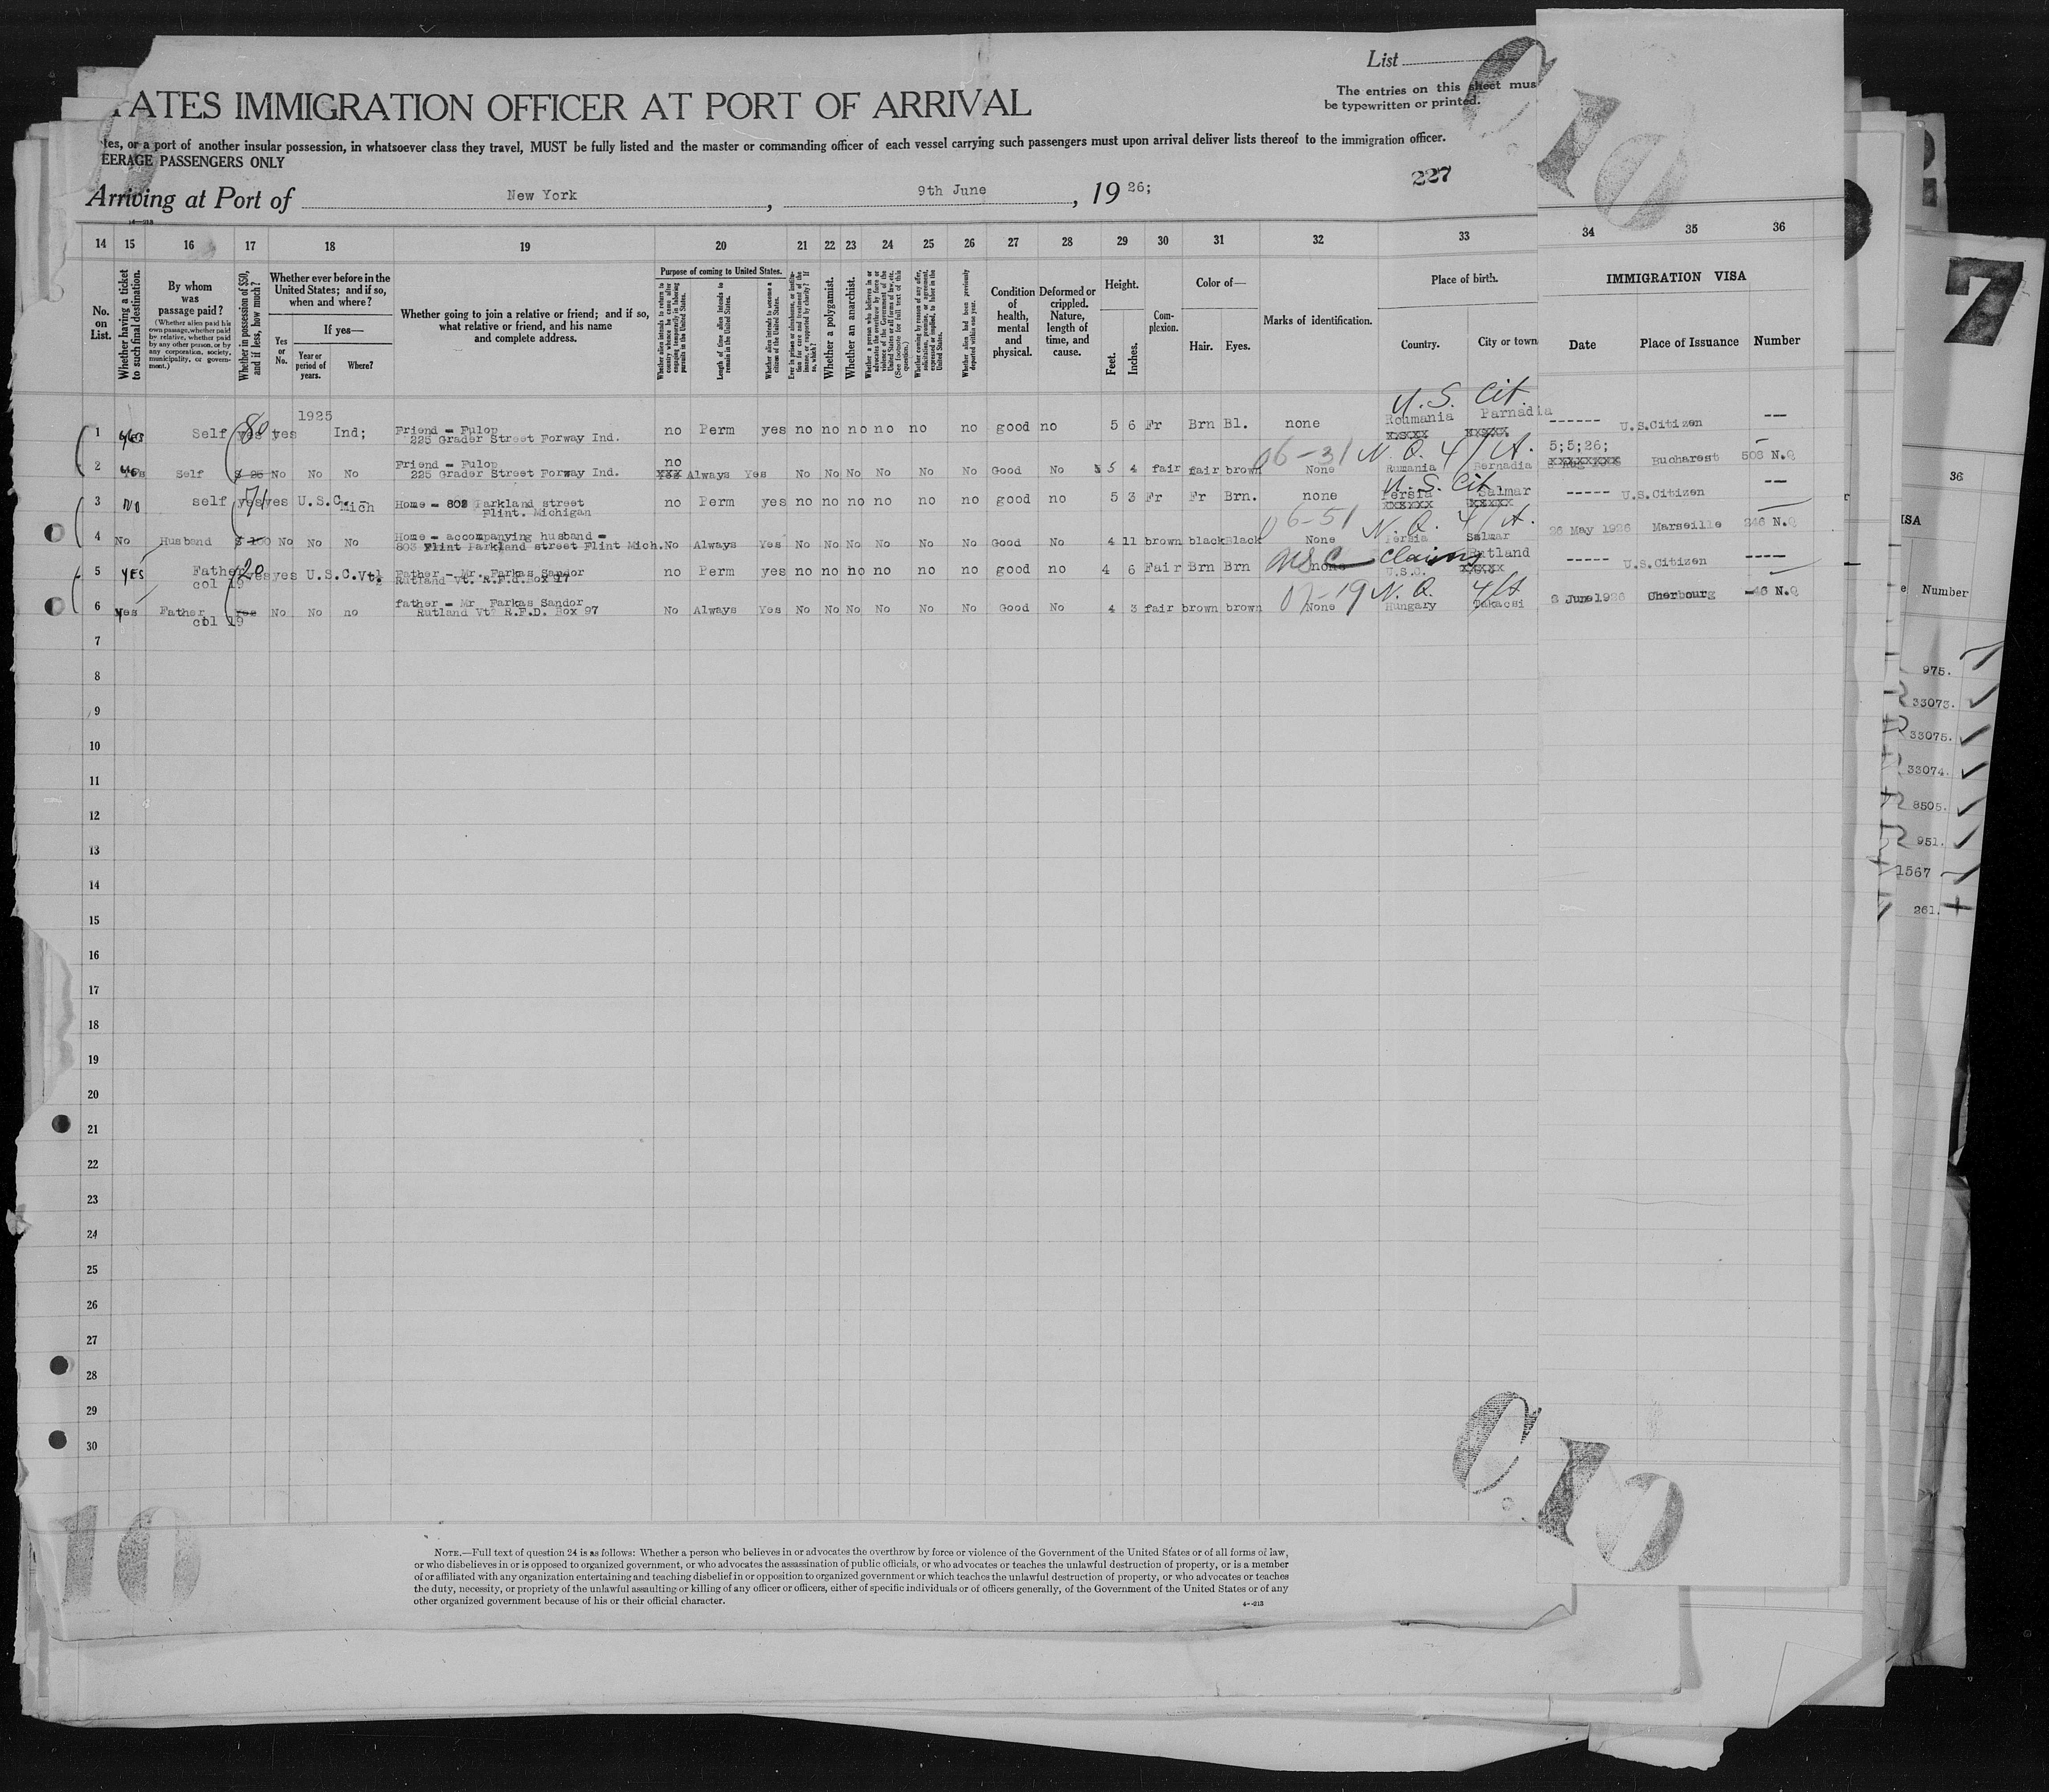 List
The entries on this sheet mus
be typewritten or printed.
TATES IMMIGRATION OFFICER AT PORT OF ARRIVAL
tes, or a port of another insular possession, in whatsoever class they travel, MUST be fully listed and the master or commanding officer of each vessel carrying such passengers must upon arrival deliver lists thereof to the immigration officer.
EERAGE PASSENGERS ONLY
227
Arriving at Port of New York, 9th June, 19 26;
14 15 16 17 18 19 20 21 22 23 24 25 26 27 28 29 30 31 32 33 34 35 36
No. on List.
Whether having a ticket to such final destination.
By whom was passage paid?
(Whether alien paid his own passage, whether paid by relative, whether paid by any other person, or by any corporation, society, municipality, or government.)
Whether in possession of $50, and if less, how much?
Whether ever before in the United States; and if so, when and where?
If yes—
Yes or No.
Year or period of years.
Where?
Whether going to join a relative or friend; and if so, what relative or friend, and his name and complete address.
Purpose of coming to United States.
Length of time alien intends to remain in the United States.
Whether alien intends to become a citizen of the United States.
Whether a polygamist.
Whether an anarchist.
Condition of health, mental and physical.
Deformed or crippled. Nature, length of time, and cause.
Height.
Feet.
Inches.
Complexion.
Color of—
Hair.
Eyes.
Marks of identification.
Place of birth.
Country.
City or town
IMMIGRATION VISA
Date
Place of Issuance
Number
U. S. Cit.
1 yes Self 80 yes yes 1925 Ind; Friend - Fulop 225 Grader Street Forway Ind. no Perm yes no no no no no no good no 5 6 Fr Brn Bl. none Roumania Parnadia ------ U.S.Citizen --
06-31 N. Q. 4/A.
2 Yes Self $ 25 No No No Friend - Fulop 225 Grader Street Forway Ind. no XXX Always Yes No No No No No No Good No 5 4 fair fair brown None Rumania Bernadia 5;5;26; Bucharest 508 N.Q
U. S. Cit
3 No self 71 yes yes U.S.C. Mich Home - 802 Parkland street Flint. Michigan no Perm yes no no no no no no good no 5 3 Fr Fr Brn. none Persia Salmar ----- U.S.Citizen --
06-51 N. Q. 4/A.
4 No Husband $ 100 No No No Home - accompanying husband - 803 Flint Parkland street Flint Mich. No Always Yes No No No No No No Good No 4 11 brown black Black None Persia Salmar 26 May 1926 Marseille 246 N.Q
USC Claims
5 YES Father col 19 20 yes yes U.S.C. Vt. Father - Mr. Farkas Sandor Rutland Vt. R.F.d.Box 97 no Perm yes no no no no no no good no 4 6 Fair Brn Brn none U.S.C. Rutland ----- U.S.Citizen ----
07-19 N. Q. 4/A
6 yes Father col 19 yes No No no father - Mr Farkas Sandor Rutland Vt R.F.D. Box 97 No Always Yes No No No No No No Good No 4 3 fair brown brown None Hungary Takacsi 2 June 1926 Cherbourg 46 N.Q
7
8
9
10
11
12
13
14
15
16
17
18
19
20
21
22
23
24
25
26
27
28
29
30
NOTE.—Full text of question 24 is as follows: Whether a person who believes in or advocates the overthrow by force or violence of the Government of the United States or of all forms of law,
or who disbelieves in or is opposed to organized government, or who advocates the assassination of public officials, or who advocates or teaches the unlawful destruction of property, or is a member
of or affiliated with any organization entertaining and teaching disbelief in or opposition to organized government or which teaches the unlawful destruction of property, or who advocates or teaches
the duty, necessity, or propriety of the unlawful assaulting or killing of any officer or officers, either of specific individuals or of officers generally, of the Government of the United States or of any
other organized government because of his or their official character.
C.10
C.10
10
7
36
ISA
Number
975.
33073.
33075.
33074.
8505.
951.
1567
261.